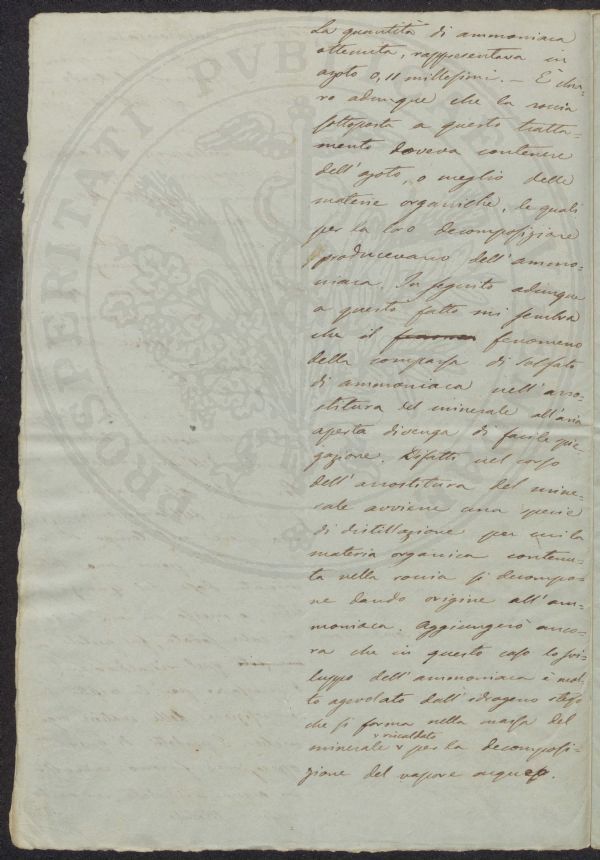 La quantità di ammoniaca
ottenuta, rappresentava in
azoto 0,11 millesimi. – È chia-
ro adunque che la roccia
sottoposta a questo tratta-
mento doveva contenere
dell'azoto, o meglio delle
materie organiche, le quali
per la loro decomposizione
producevano dell'ammo-
niaca. In seguito adunque
a questo fatto mi sembra
che il fenomeno
della comparsa di solfato
di ammoniaca nell'arro-
stitura del minerale all'aria
aperta divenga di facile spie-
gazione. Difatti nel corso
dell'arrostitura del mine-
rale avviene una specie
di distillazione per cui la
materia organica contenu-
ta nella roccia si decompo-
ne dando origine all'am-
moniaca. Aggiungerò anco-
ra che in questo caso lo svi-
luppo dell'ammoniaca è mol-
to agevolato dall'idrogeno stesso
che si forma nella massa del
minerale riscaldato per la decomposi-
zione del vapore acqueo.
PROSPERITATI PUBLICAE